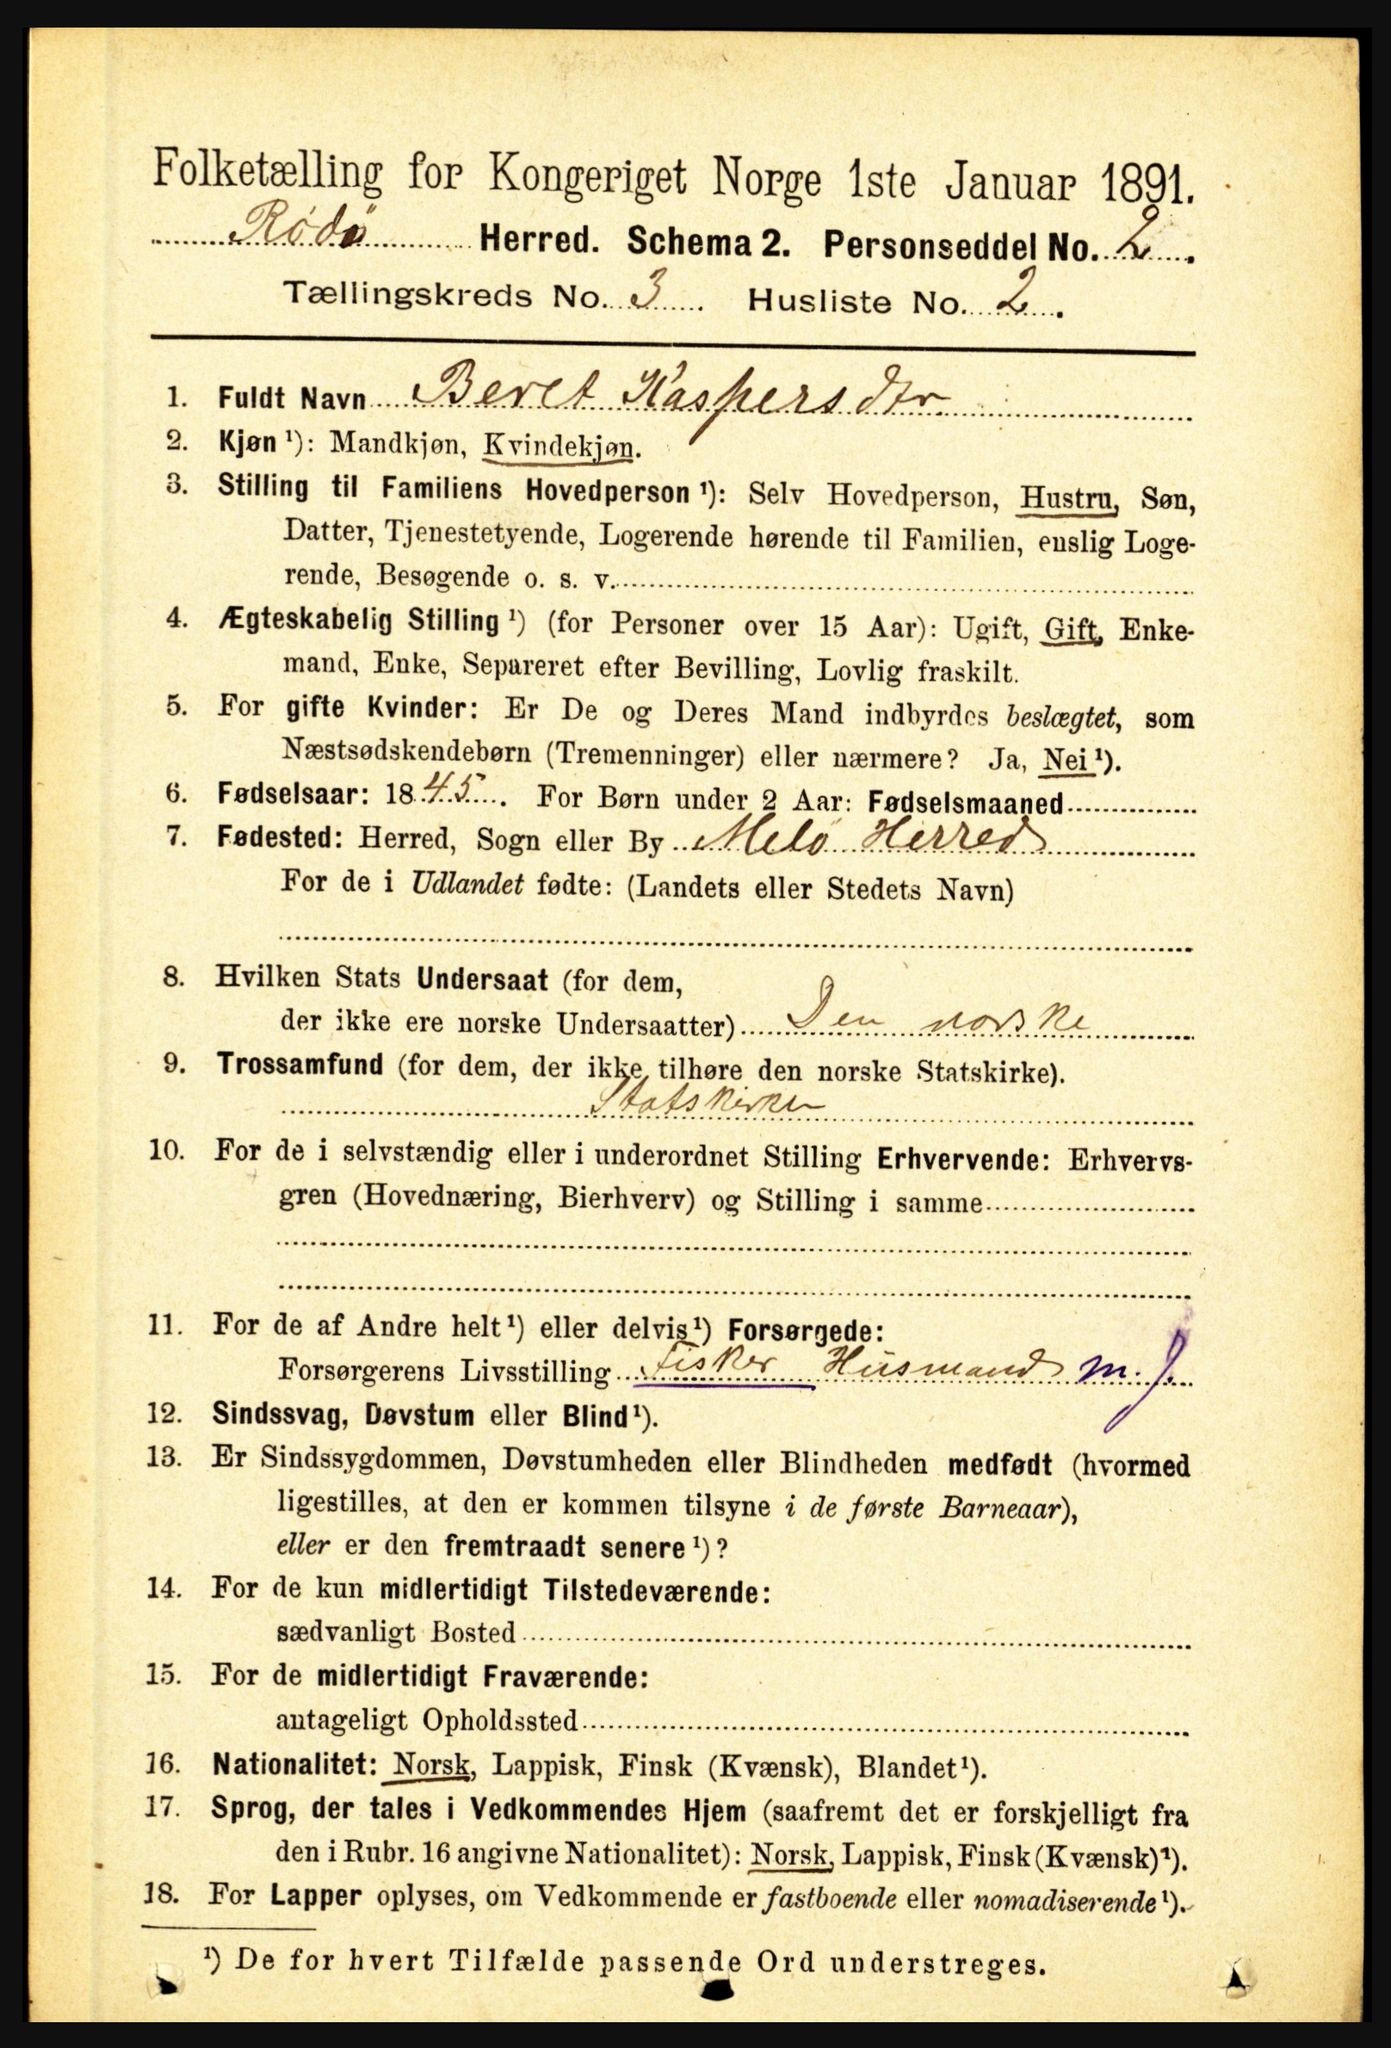 Folketælling for Kongeriget Norge 1ste Januar 1891.
Rödö Herred. Schema 2. Personseddel No. 2.
Tællingskreds No. 3. Husliste No. 2.
1. Fuldt Navn Beret Kaspersdtr
2. Kjøn ¹): Mandkjøn, Kvindekjøn.
3. Stilling til Familiens Hovedperson ¹): Selv Hovedperson, Hustru, Søn,
Datter, Tjenestetyende, Logerende hørende til Familien, enslig Loge-
rende, Besøgende o. s. v.
4. Ægteskabelig Stilling ¹) (for Personer over 15 Aar): Ugift, Gift, Enke-
mand, Enke, Separeret efter Bevilling, Lovlig fraskilt.
5. For gifte Kvinder: Er De og Deres Mand indbyrdes beslægtet, som
Næstsødskendebørn (Tremenninger) eller nærmere? Ja, Nei ¹).
6. Fødselsaar: 1845. For Børn under 2 Aar: Fødselsmaaned
7. Fødested: Herred, Sogn eller By Melö Herred
For de i Udlandet fødte: (Landets eller Stedets Navn)
8. Hvilken Stats Undersaat (for dem,
der ikke ere norske Undersaatter) Den norske
9. Trossamfund (for dem, der ikke tilhøre den norske Statskirke).
Statskirken
10. For de i selvstændig eller i underordnet Stilling Erhvervende: Erhvervs-
gren (Hovednæring, Bierhverv) og Stilling i samme
11. For de af Andre helt ¹) eller delvis ¹) Forsørgede:
Forsørgerens Livsstilling Fisker Husmand m. J.
12. Sindssvag, Døvstum eller Blind ¹).
13. Er Sindssygdommen, Døvstumheden eller Blindheden medfødt (hvormed
ligestilles, at den er kommen tilsyne i de første Barneaar),
eller er den fremtraadt senere ¹)?
14. For de kun midlertidigt Tilstedeværende:
sædvanligt Bosted
15. For de midlertidigt Fraværende:
antageligt Opholdssted
16. Nationalitet: Norsk, Lappisk, Finsk (Kvænsk), Blandet ¹).
17. Sprog, der tales i Vedkommendes Hjem (saafremt det er forskjelligt fra
den i Rubr. 16 angivne Nationalitet): Norsk, Lappisk, Finsk (Kvænsk) ¹).
18. For Lapper oplyses, om Vedkommende er fastboende eller nomadiserende ¹).
¹) De for hvert Tilfælde passende Ord understreges.